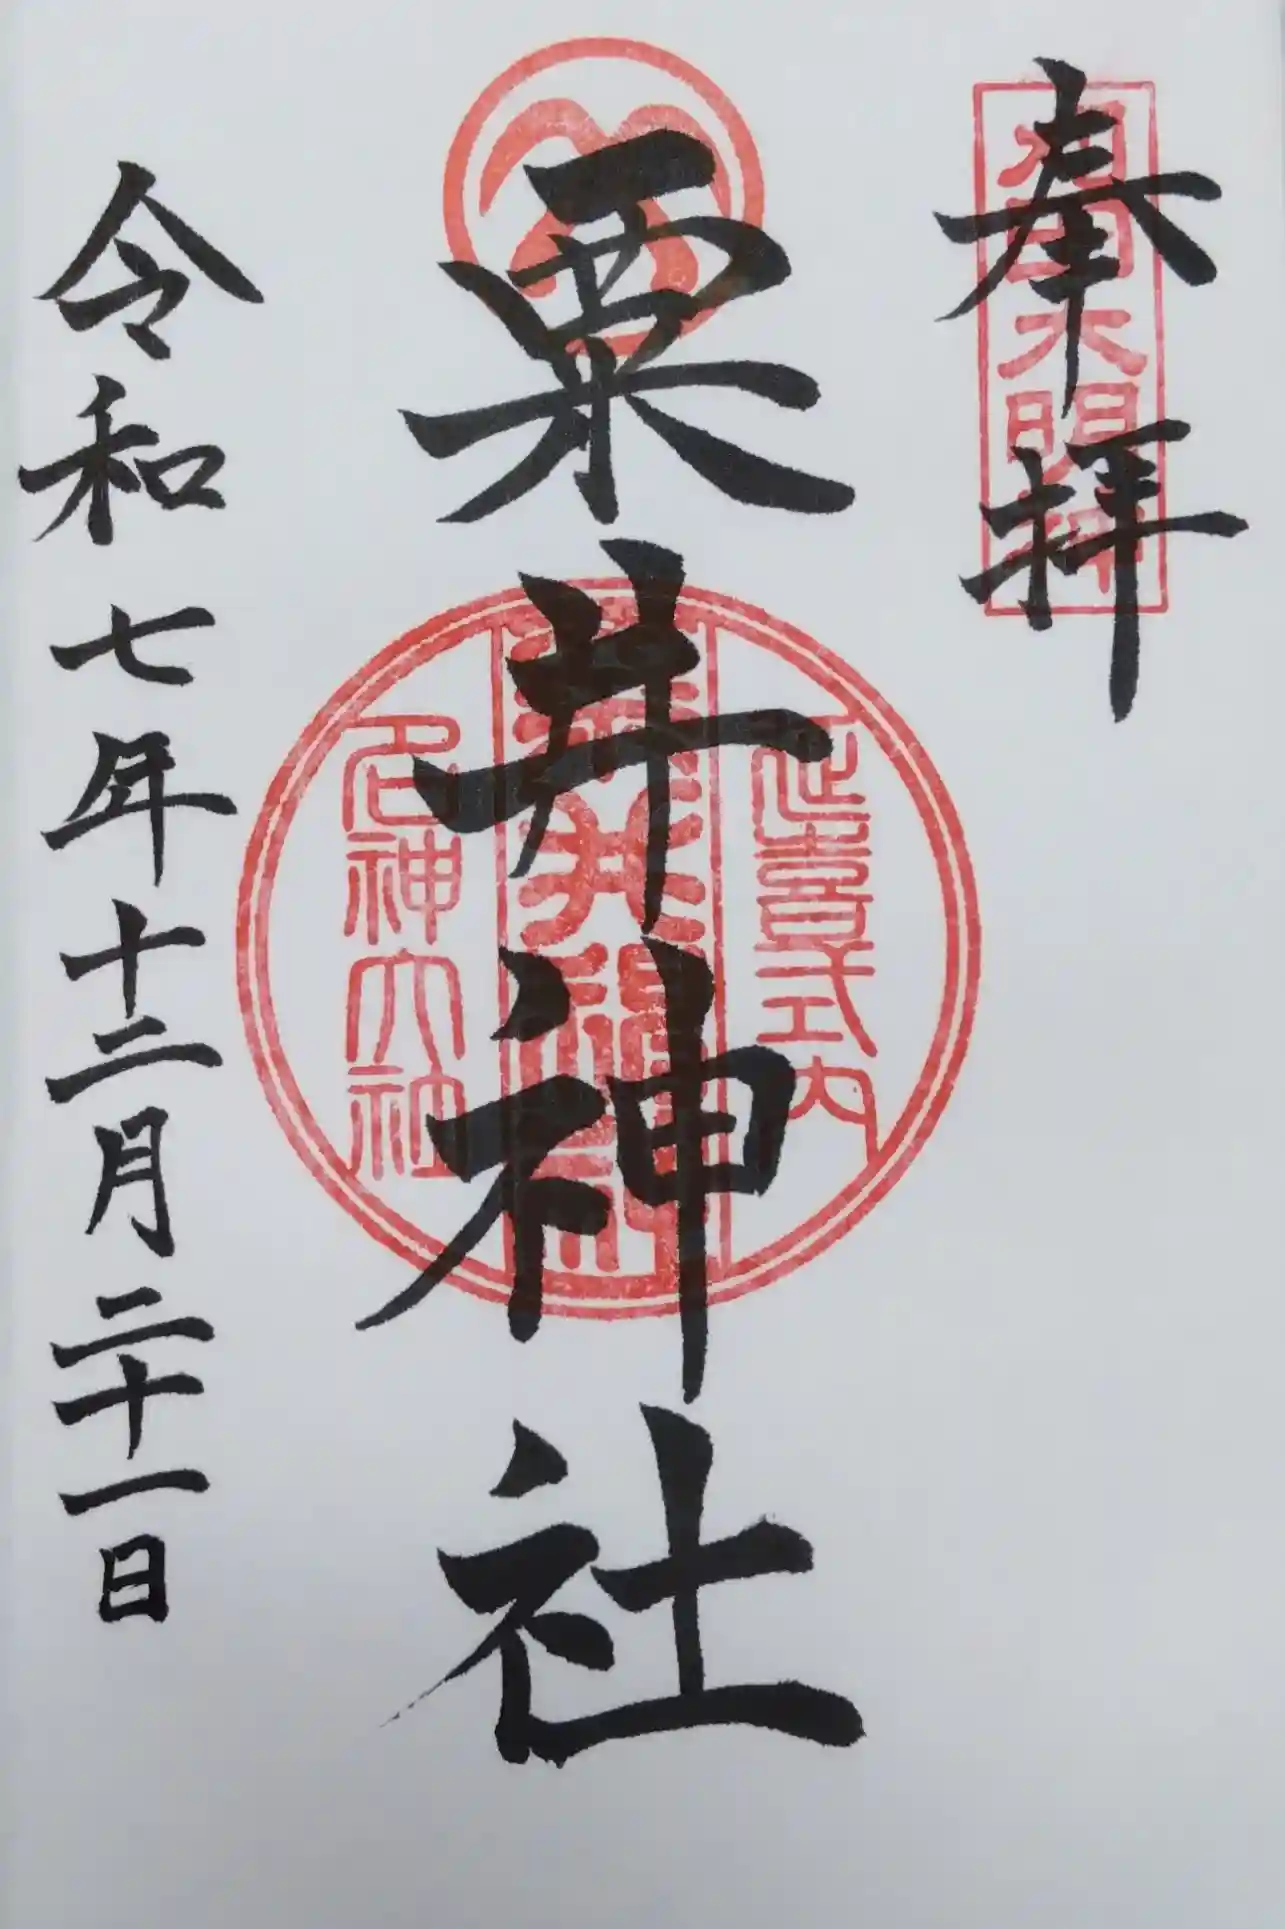 奉拝
粟井神社
延喜式内
粟井神社
名神大社
令和七年十二月二十一日